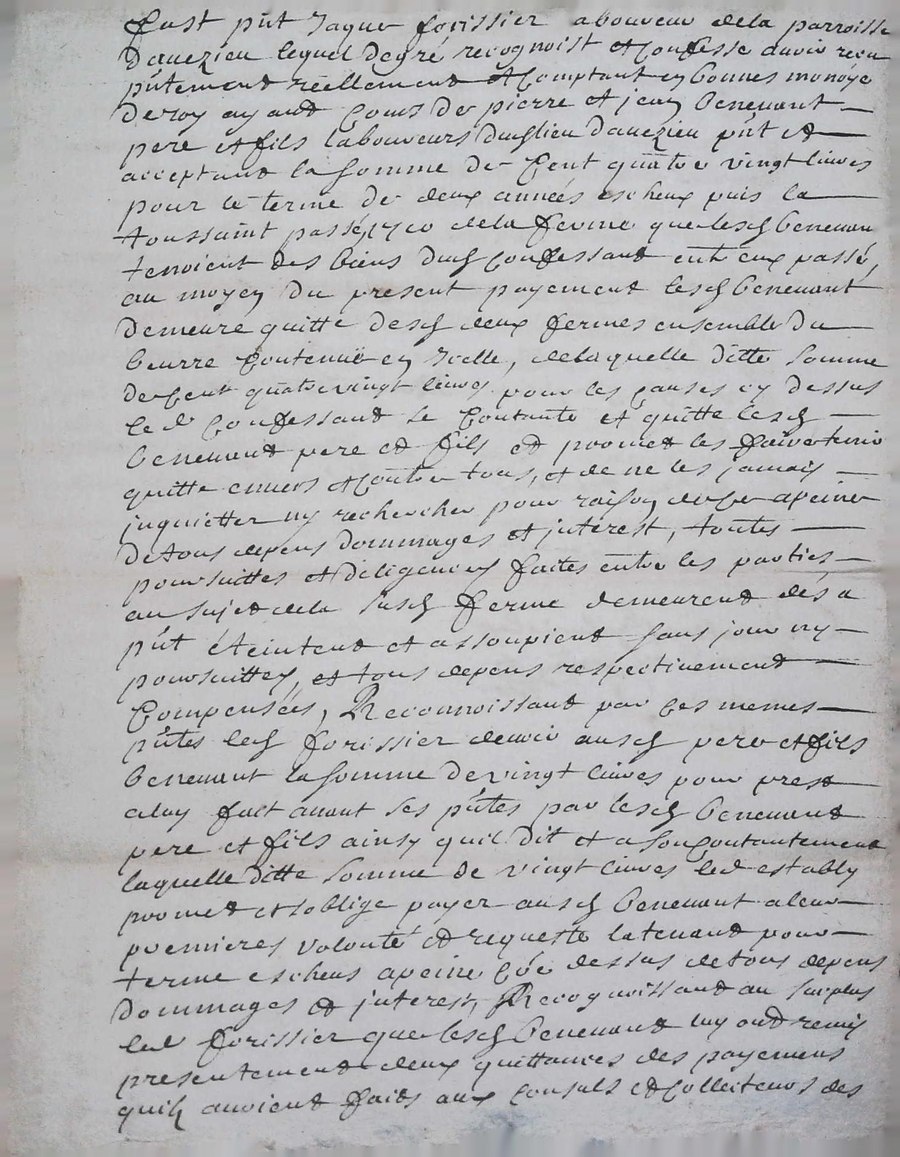 fust pnt Jaque forissier laboureur dela parroisse
davezieu lequel de gré recognoist et confesse avoir reçeu
pntement reellement et Comptant en bonnes monoye
de roy ayand Cours de pierre et jean benevant
pere et fils laboureurs dud lieu davezieu pnt et
acceptand la somme de Cent quatre vingt livres
pour le terme de deux années escheux puis la
toussaint passé 1720 dela ferme que lesd benevan
tenoient des biens dud Confessand entr eux passé,
au moyen du present payement lesd benevant
demeure quitte desd deux fermes ensemble du
beurre Contenüe en Icelle, de laquelle ditte somme
de Cent quatre vingt livres pour les causes cy dessus
led Confessand se Contante et quitte lesd
benevend pere et fils et promet les faire tenir
quitte envers et Contre tous, et de ne les jamais
inquietter ny rechercher pour raison de ce apeine
de tous depens dommages et interest, toutes
poursuittes et deligences faites entre les parties
au sujet dela susd ferme demeurent dés a
pnt éteintent et assoupient sans jour ny
poursuittes, et tous depens respectivement
Compensées, Reconnoissand par ces memes
pntes led forissier devoir ausd pere et fils
benevant la somme de vingt livres pour prest
aluy fait avant ses pntes par lesd benevend
pere et fils ainsy quil dit et a son contantement
laquelle ditte somme de vingt livres led estably
promet et soblige payer ausd benevant a leur
premieres volonté et requeste la tenand pour
terme escheus apeine Coe dessus de tous depens
dommages et interest, Recognoissand au surplus
led forissier que lesd benevend luy ont remis
presentement deux quittances des payemens
quils avoient faits aux Consuls et Collecteurs des